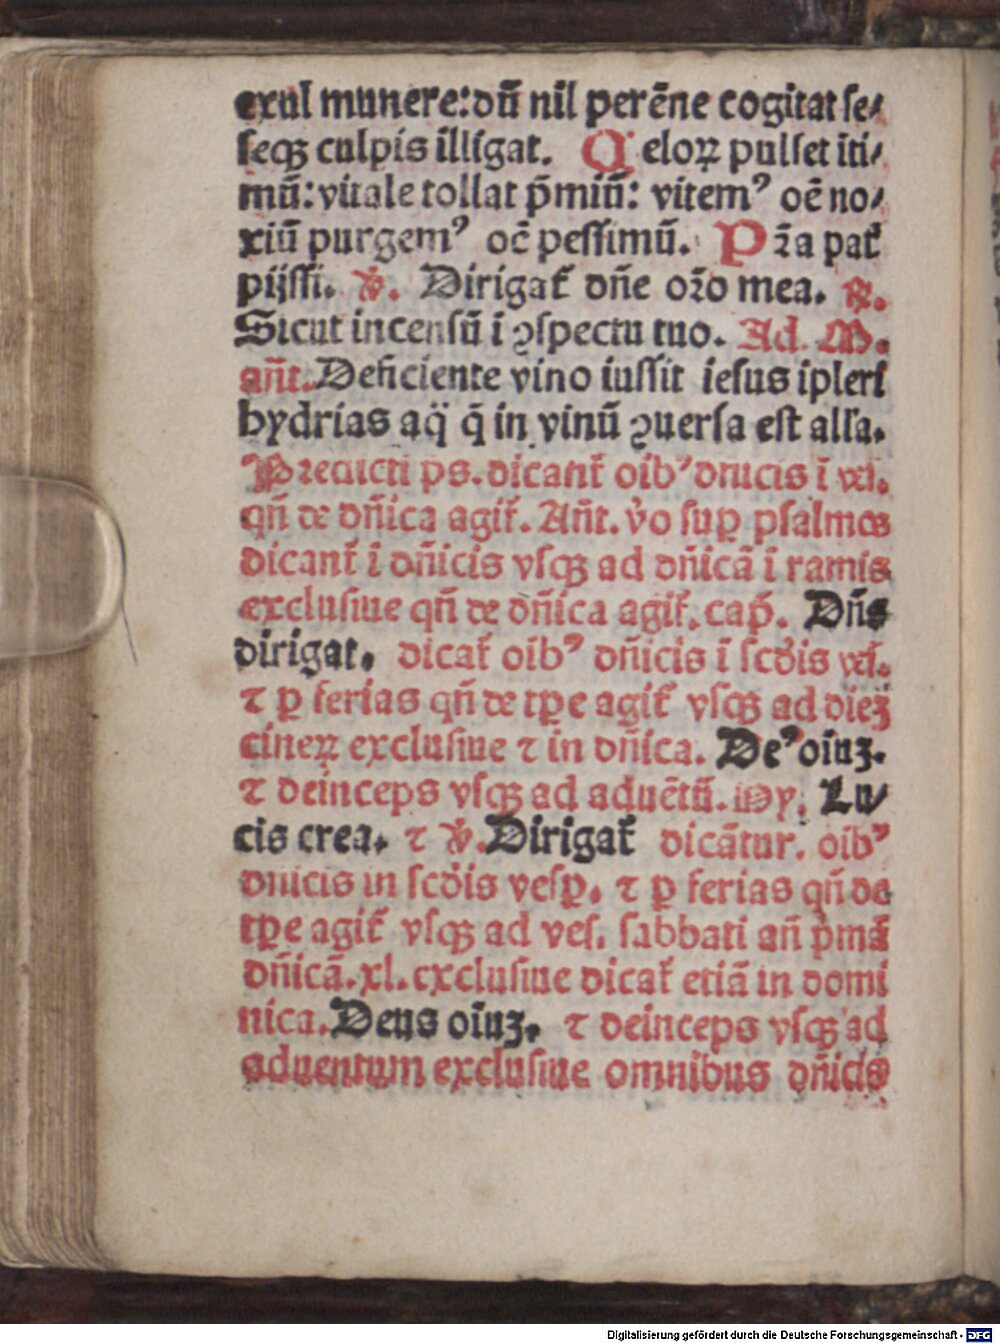 exul munere: dū nil perēne cogitat ſe⸗
ſeqꝫ culpis illigat. Celoꝝ pulſet īti⸗
mū: vitale tollat p̄miū: vitemꝰ oē no⸗
xiū purgemꝰ oē peſſimū. Pꝛ̄a pat̄
pijſſi. ℣. Dirigat᷑ dn̄e oꝛ̄o mea. ℟.
Sicut incenſū ī ꝯſpectu tuo. Ad. M.
an̄t. Deficiente vino iuſſit ieſus īpleri
hydrias aq̈ q̄ in vinū ꝯuerſa eſt alla.
Predicti ps. dicant᷑ oībꝰ dn̄icis ī veſ.
qn̄ de dn̄ica agit᷑. An̄t. v̊o ſuꝑ pſalmos
dicant᷑ ī dn̄icis vſqꝫ ad dn̄icā ī ramis
excluſiue qn̄ de dn̄ica agit᷑. cap̄. Dn̄s
dirigat. dicat᷑ oībꝰ dn̄icis ī ſcd̄is veſ.
⁊ ꝑ ferias qn̄ de tꝑe agit᷑ vſqꝫ ad dieꝫ
cineꝝ excluſiue ⁊ in dn̄ica. Deꝰ oīuꝫ.
⁊ deinceps vſqꝫ ad aduētū. Hy. Lu⸗
cis crea. ⁊ ℣. Dirigat᷑ dicātur. oībꝰ
dn̄icis in ſcd̄is veſꝑ. ⁊ ꝑ ferias qn̄ de
tꝑe agit᷑ vſqꝫ ad veſ. ſabbati an̄ p̄mā
dn̄icā. xl. excluſiue dicat᷑ etiā in domi
nica. Deus oīuꝫ. ⁊ deinceps vſqꝫ ad
aduentum excluſiue omnibus dn̄icis
Digitalisierung gefördert durch die Deutsche Forschungsgemeinschaft - DFG